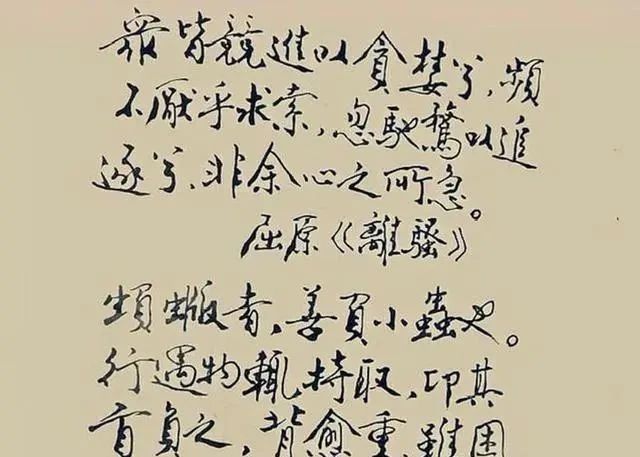 衆皆競進以貪婪兮,頻
不厭乎求索,忽馳騖以追
逐兮,非余心之所急。
屈原《離騷》
蝜蝂者,善負小蟲也。
行遇物輒持取,卬其
首負之,背愈重,雖困